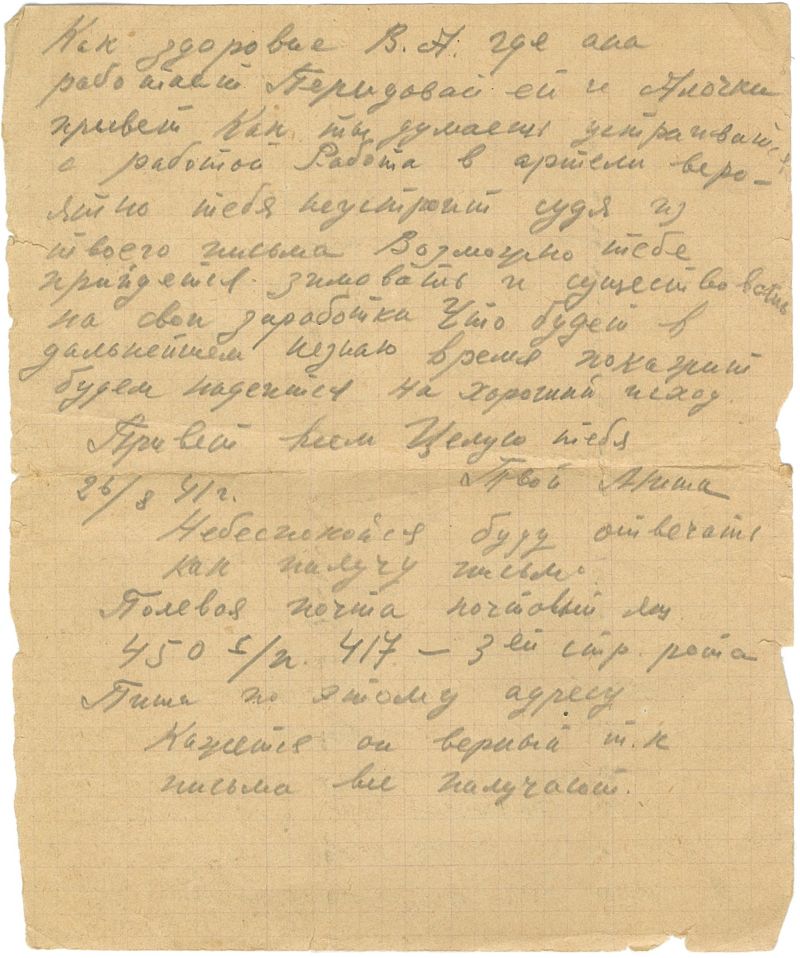 Как здоровие В.А. где ана
работаит Перидовай ей и Алочки
привет Как ты думаеш устраиватся
с работой Работа в артели веро-
ятно тебя неустроит судя из
твоего письма Возможно тебе
прийдется зимовать и существовать
на свои заработки Что будет в
дальнейшем незнаю время покажит
будем надеится на хороший исход.
Привет всем Целую тебя
26/8 41г. Твой
Небеспокойся буду отвечать
как палучу письмо.
Полевая почта почтовый ящ
450 с/п. 417 – 3ей стр. рота
Пиши по этому адресу
Кажется он верный т.к
письма все палучают.